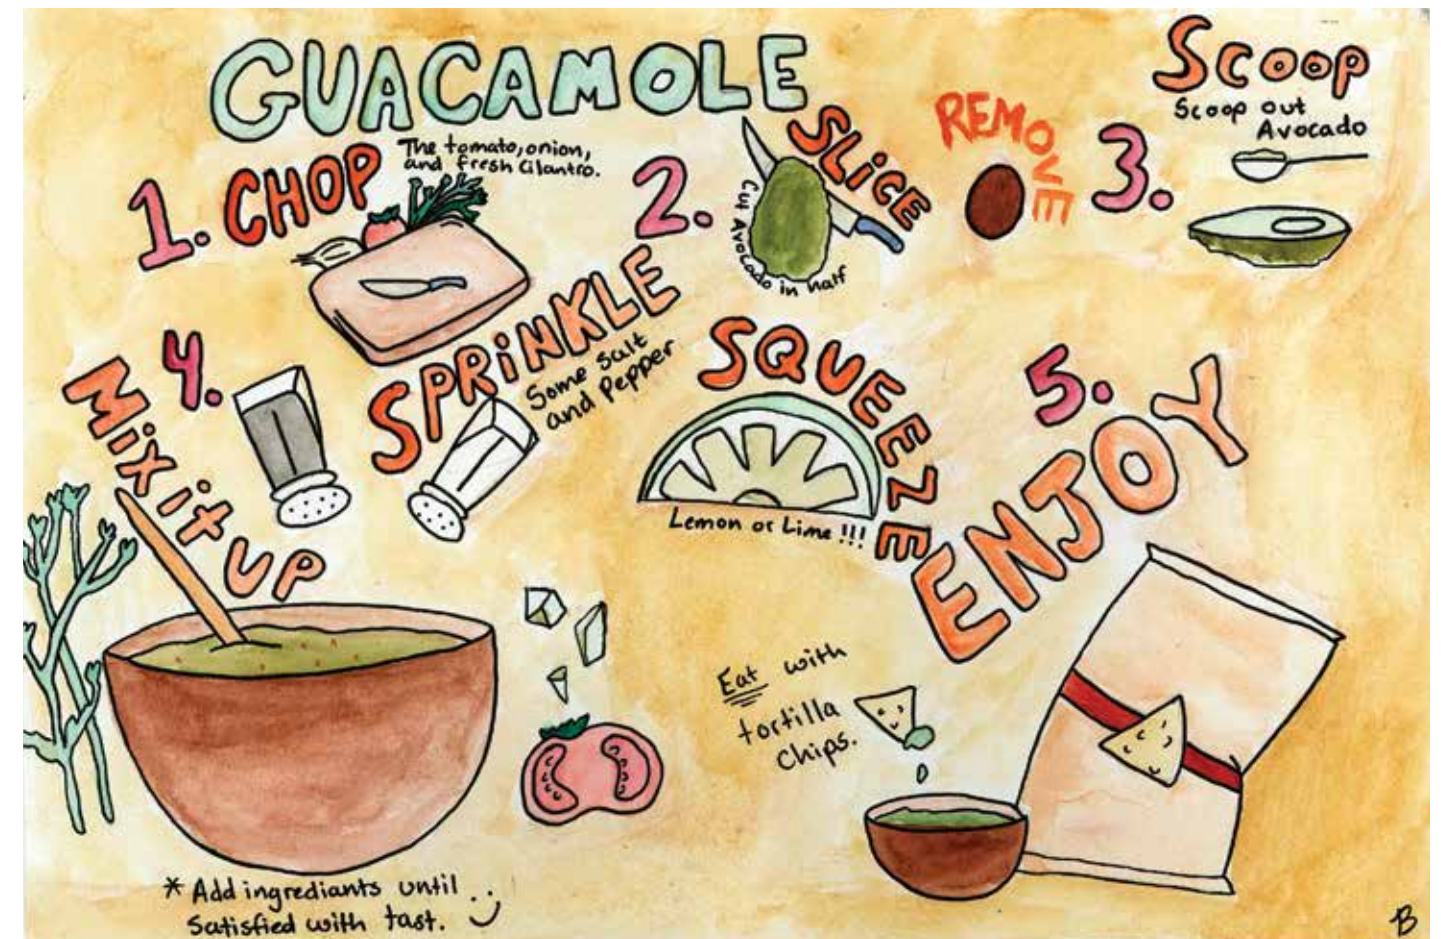 GUACAMOLE
1. CHOP
The tomato, onion,
and fresh Cilantro.
2. SLiCE
Cut Avocado in half
REMOVE
3. Scoop
Scoop out
Avocado
4. Mix it UP
SPRiNKLE
Some salt
and Pepper
SQUEEZE
Lemon or Lime !!!
5. ENJOY
Eat with
tortilla
Chips.
* Add ingrediants until
Satisfied with tast.
B